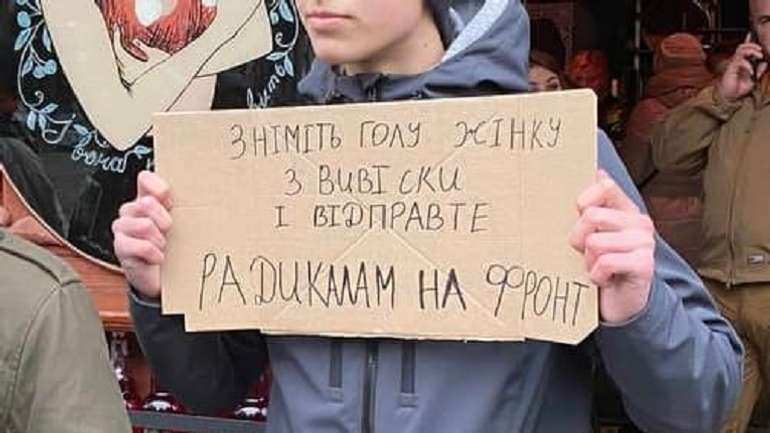 ЗНІМІТЬ ГОЛУ ЖІНКУ
З ВИВІСКИ
І ВІДПРАВТЕ
РАДИКАЛАМ НА ФРОНТ
і вона